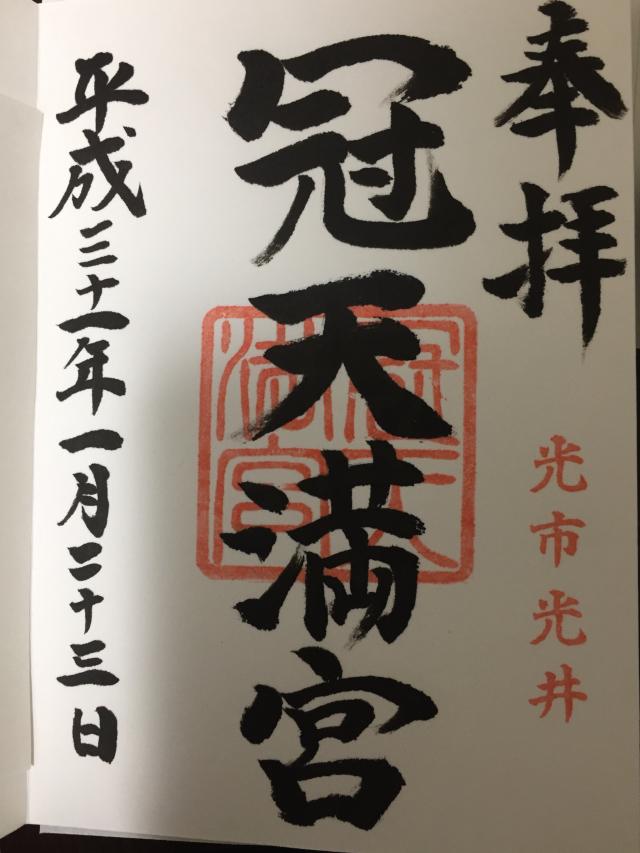 奉拝
光市光井
冠天満宮
冠天満宮
平成三十一年一月二十三日